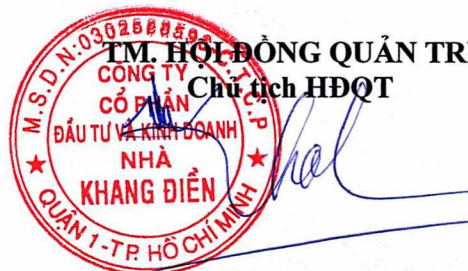 TM. HỘI ĐỒNG QUẢN TRỊ
Chủ tịch HĐQT
M.S.D.N:
C.T.C.P
CÔNG TY
CỔ PHẦN
ĐẦU TƯ VÀ KINH DOANH
NHÀ
KHANG ĐIỀN
QUẬN 1-TP. HỒ CHÍ MINH